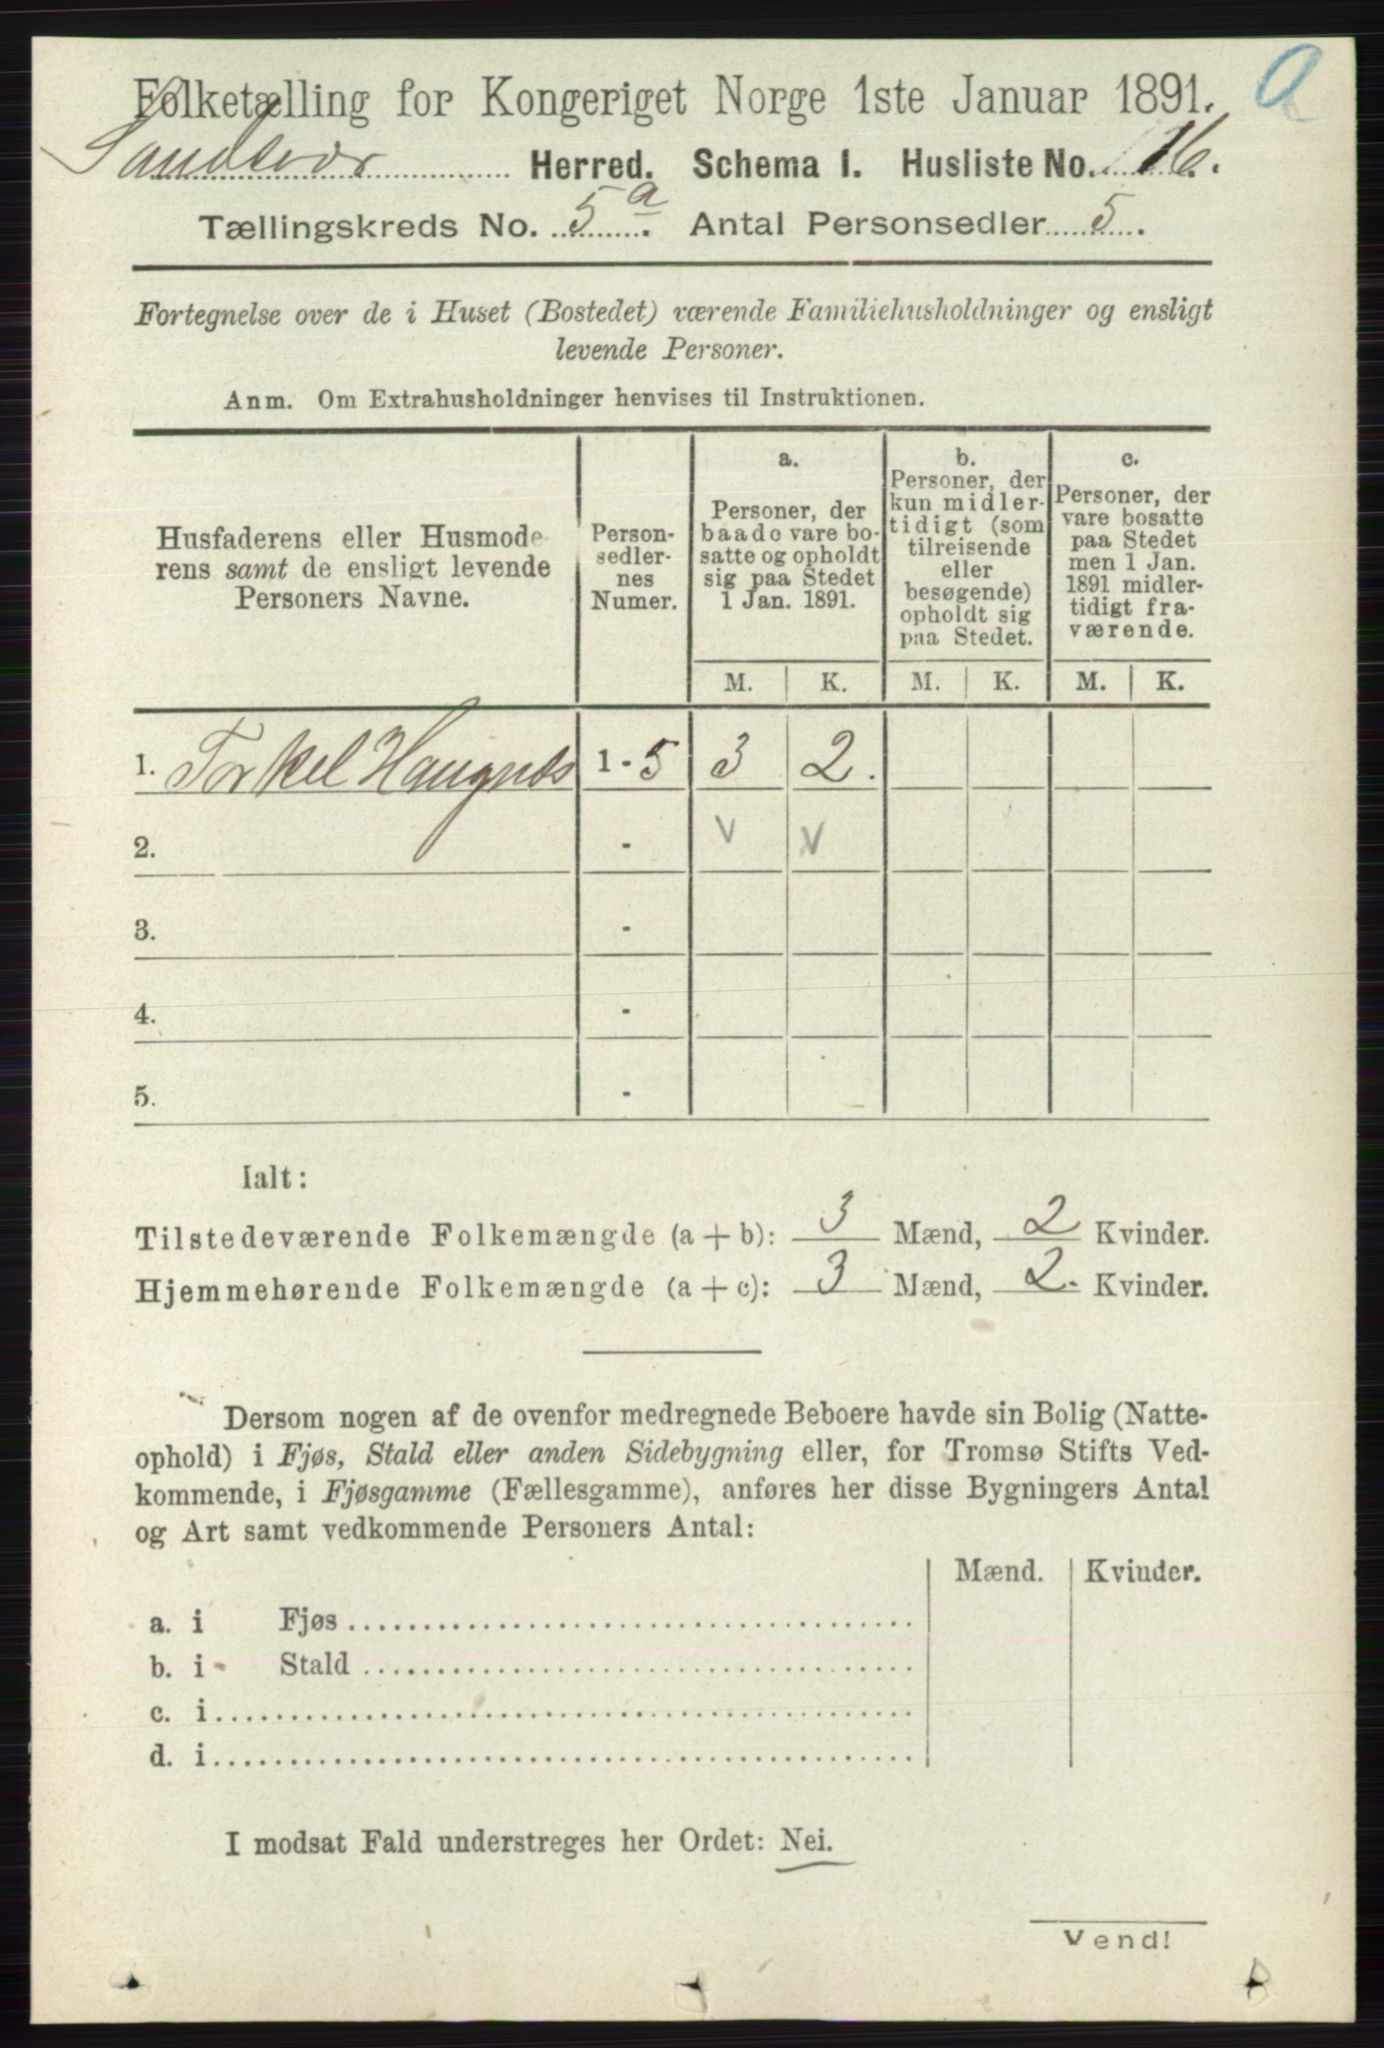 Folketælling for Kongeriget Norge 1ste Januar 1891.
a
Sandsvær Herred. Schema 1. Husliste No. 16.
Tællingskreds No. 5a. Antal Personsedler 5.
Fortegnelse over de i Huset (Bostedet) værende Familiehusholdninger og ensligt
levende Personer.
Anm. Om Extrahusholdninger henvises til Instruktionen.
Husfaderens eller Husmode
rens samt de ensligt levende
Personers Navne.
Person-
sedler-
nes
Numer.
a.
Personer, der
baade vare bo-
satte og opholdt
sig paa Stedet
1 Jan. 1891.
b.
Personer, der
kun midler-
tidigt (som
tilreisende
eller
besøgende)
opholdt sig
paa Stedet.
c.
Personer, der
vare bosatte
paa Stedet
men 1 Jan.
1891 midler-
tidigt fra-
værende.
M. K. M. K. M. K.
1. Torkel 1 - 5 3 2.
2. - v v
3. -
4. -
5. -
Ialt:
Tilstedeværende Folkemængde (a + b): 3 Mænd, 2 Kvinder.
Hjemmehørende Folkemængde (a + c): 3 Mænd, 2. Kvinder.
Dersom nogen af de ovenfor medregnede Beboere havde sin Bolig (Natte-
ophold) i Fjøs, Stald eller anden Sidebygning eller, for Tromsø Stifts Ved-
kommende, i Fjøsgamme (Fællesgamme), anføres her disse Bygningers Antal
og Art samt vedkommende Personers Antal:
Mænd. Kvinder.
a. i Fjøs
b. i Stald
c. i
d. i
I modsat Fald understreges her Ordet: Nei.
Vend!